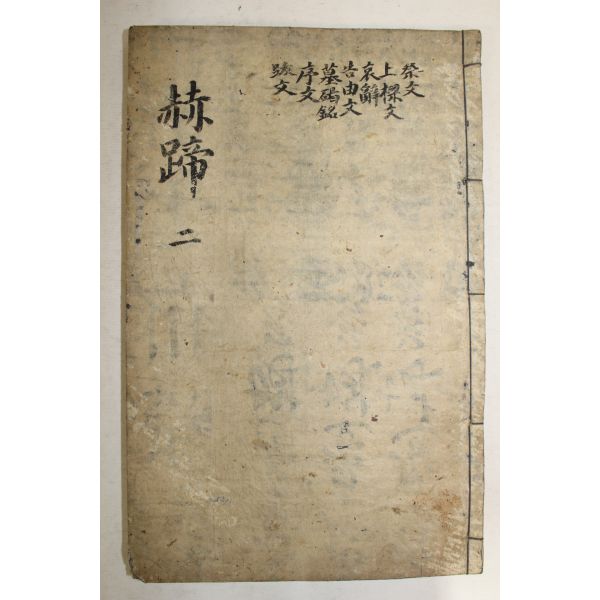 祭文
上樑文
哀辭
告由文
墓碣銘
序文
疏文
赫蹄
二